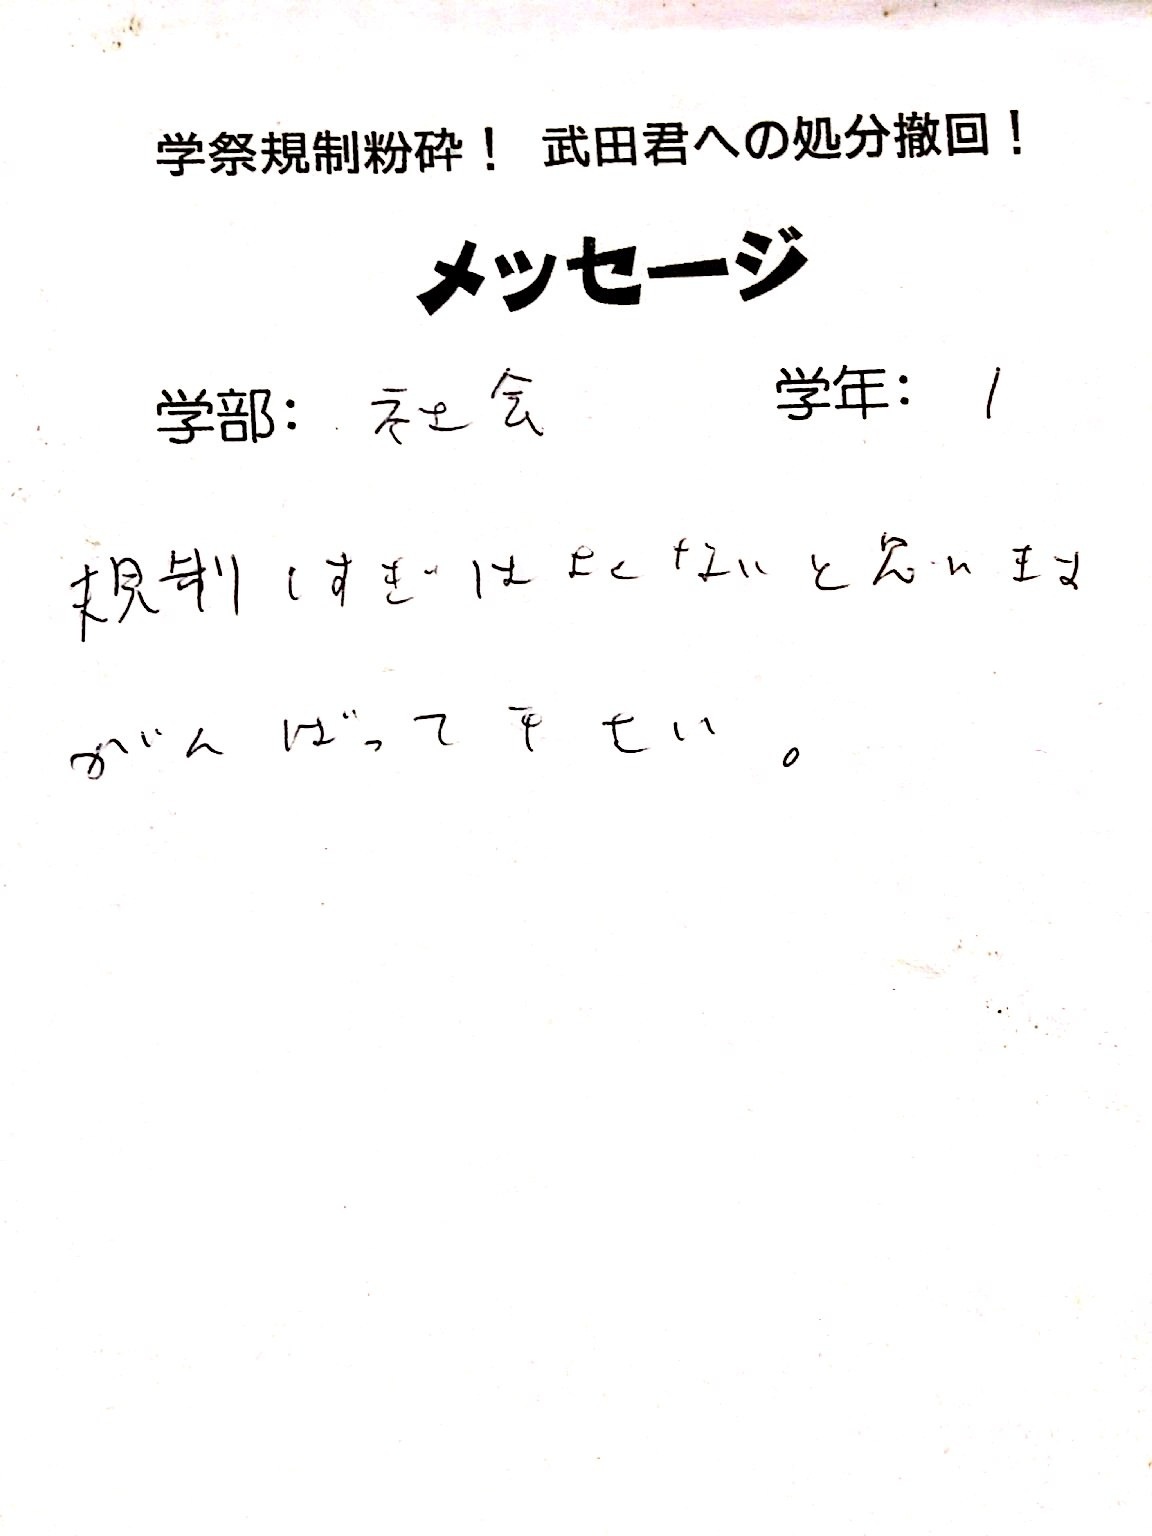 学祭規制粉砕！ 武田君への処分撤回！
メッセージ
学部： 社会 学年： 1
規制しすぎはよくないと思います
がんばって下さい。